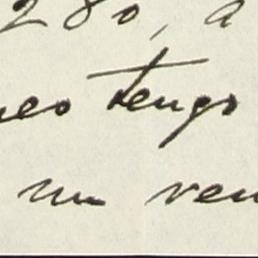 280, a
neo tengo
un ven